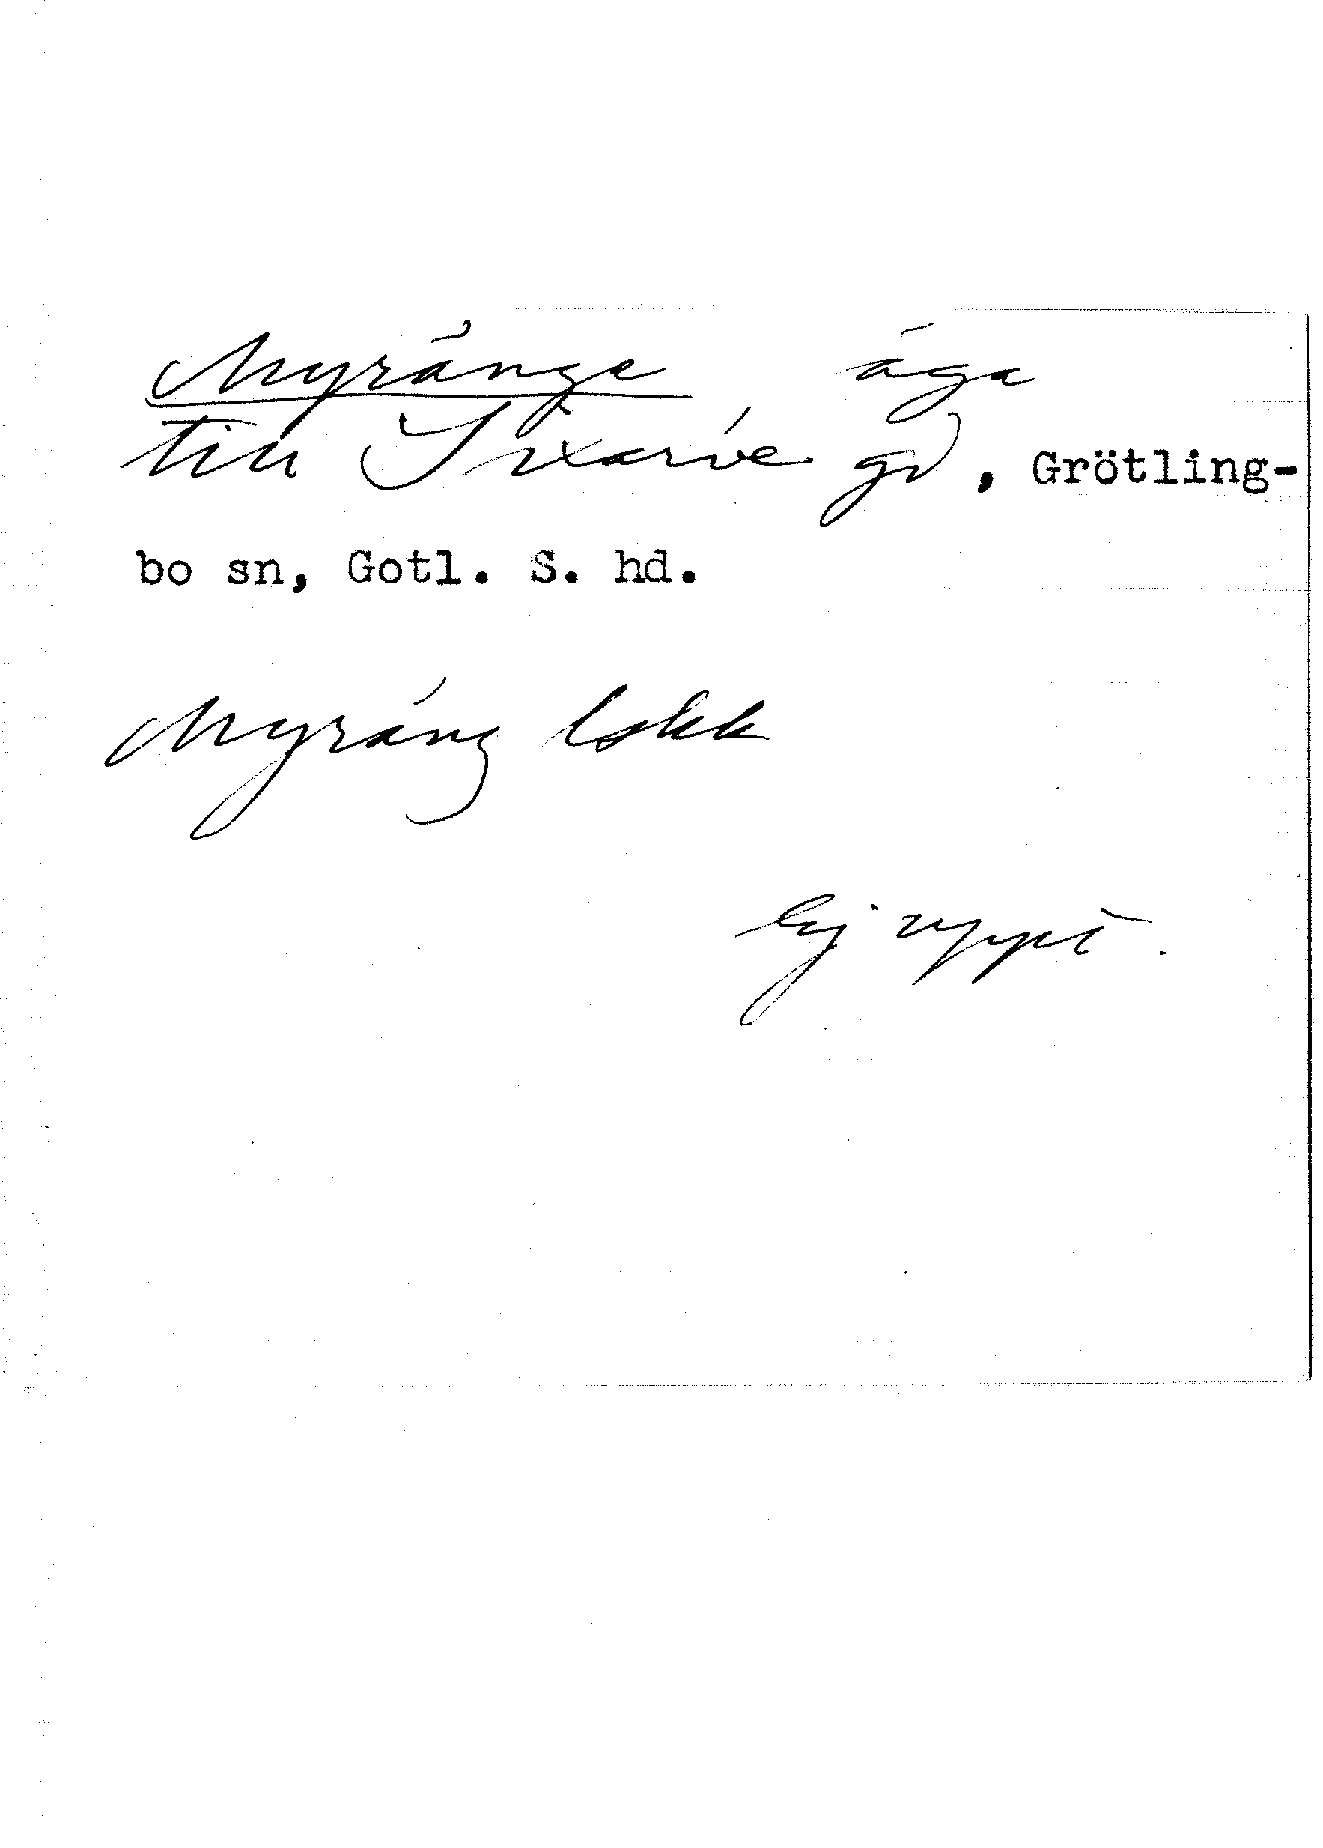 Myränge äga
till Sixarve gd, Grötling-
bo sn, Gotl. S. hd.
Myräng Lskk
Ej uppt.